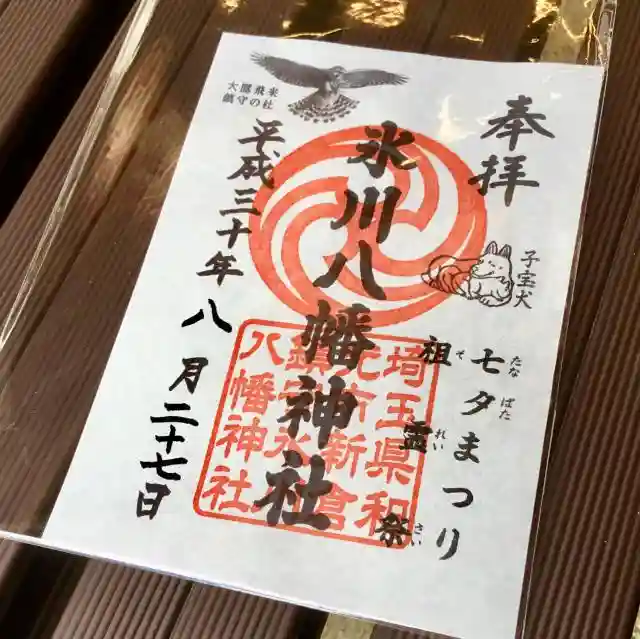 奉拝
子宝犬
七夕まつり
たなばた
祖霊祭
それいさい
氷川八幡神社
埼玉県和
光市新倉
鎮守氷川
八幡神社
大鷹飛来
鎮守の杜
平成三十年八月二十七日